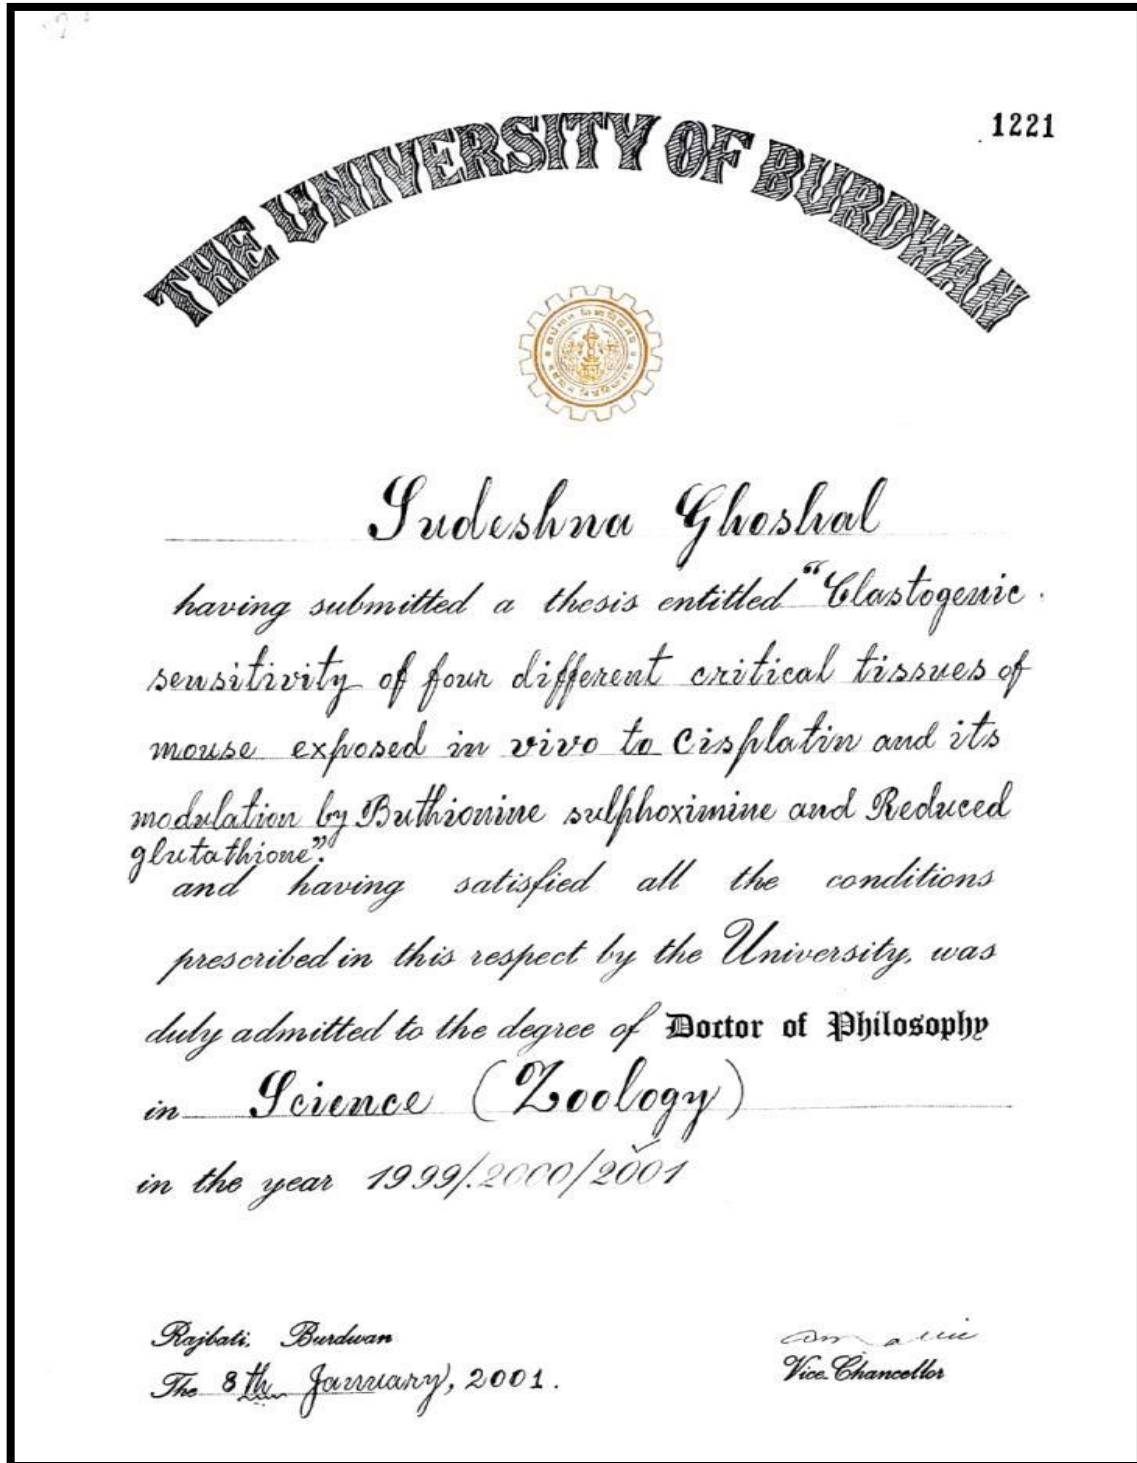 1221
THE UNIVERSITY OF BURDWAN
Sudeshna Ghoshal
having submitted a thesis entitled "Clastogenic
sensitivity of four different critical tissues of
mouse exposed in vivo to Cisplatin and its
modulation by Buthionine sulphoximine and Reduced
glutathione".
and having satisfied all the conditions
prescribed in this respect by the University, was
duly admitted to the degree of Doctor of Philosophy
in Science (Zoology)
in the year 1999/2000/2001
Rajbati, Burdwan
The 8th January, 2001.
Vice-Chancellor